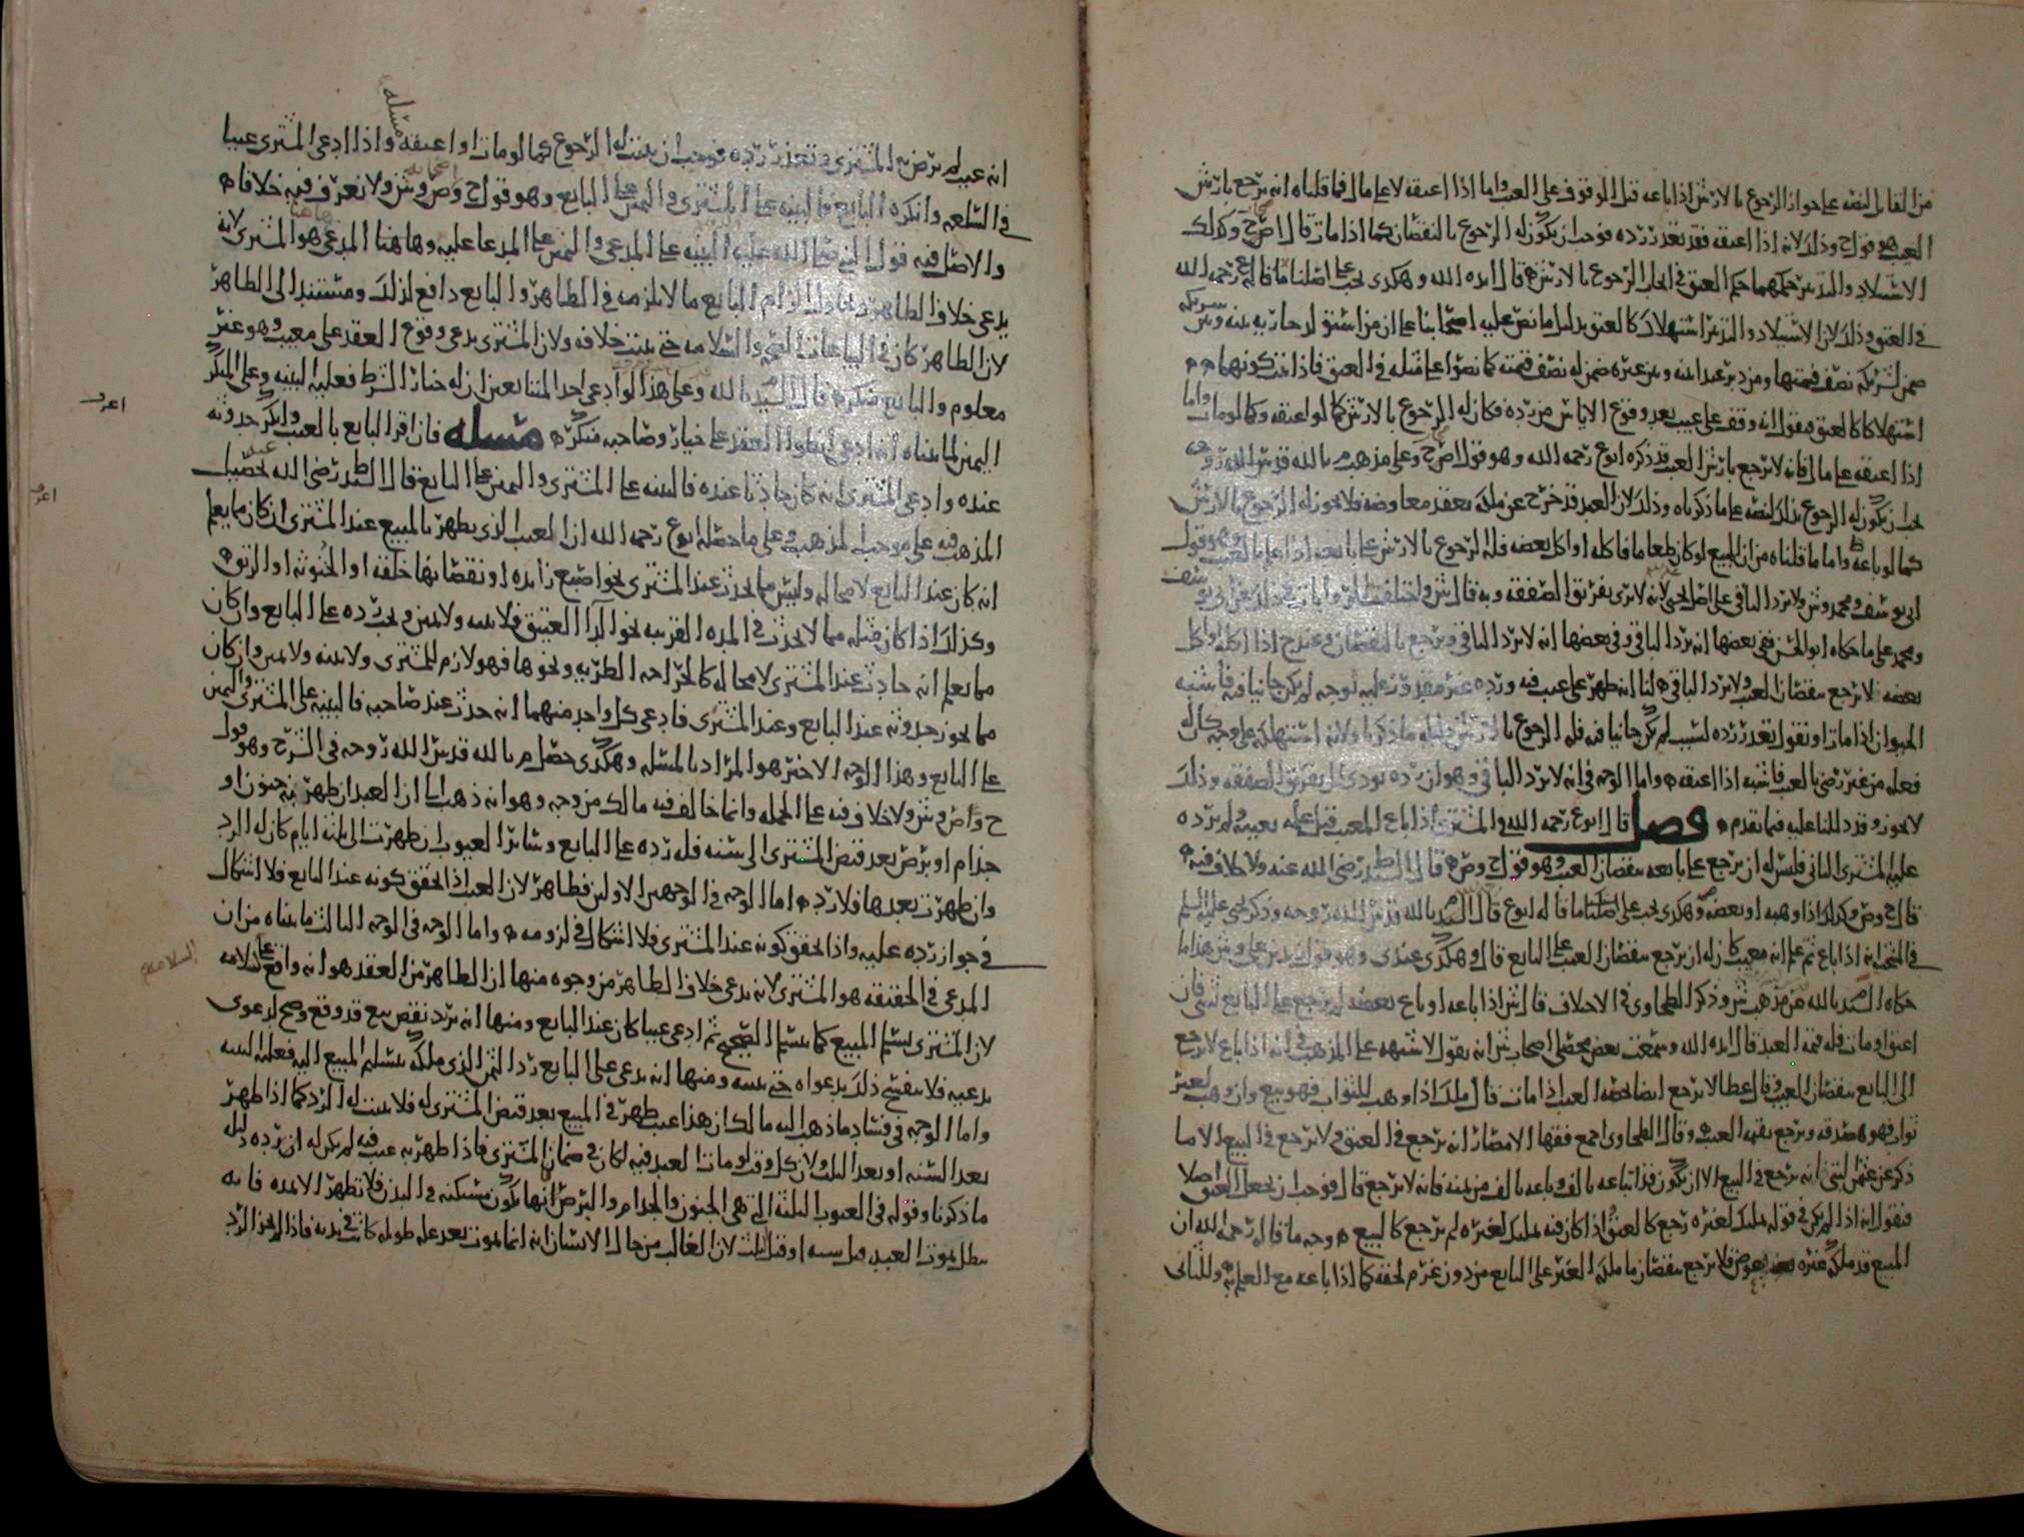 من القابل لنفسه على جواز الرجوع بالارش اذا باعه قبل الوقوف على العيب واما اذا اعتقه لا على مال فما قلناه انه يرجع بارش
العيب هو قول ح وذلك لانه اذا اعتقه فقد تعذر رده فوجب ان يكون له الرجوع بالنقصان كما اذا مات قال اص ح وكذلك
الاستيلاد والتدبير حكمهما حكم العتق في ايجاب الرجوع بالارش قال ايده الله وهكذى يجب على اصلنا ما قاله ابوع رحمه الله
في العتق وذلك لان الاستيلاد والتدبير استهلاك كالعتق بدليل ما نص عليه اصحابنا على ان من استولد جاريه بينه وبين شريكه
ضمن لشريكه نصف قيمتها ومن دبر عبدا بينه وبين غيره ضمن له نصف قيمته كما نصوا على مثله في العتق فاذا ثبت كونهما
استهلاكا كالعتق فنقول انه وقف على عيب بعد وقوع الاياس من رده فكان له الرجوع بالارش كما لو اعتقه وكما لو مات واما
اذا اعتقه على مال فانه لا يرجع بارش العيب قد ذكره ابوع رحمه الله وهو قول اص ح وعلى مذهب م بالله قدس الله روحه
يجب ان يكون له الرجوع بذلك لنصه على ما ذكرناه وذلك لان العبد قد خرج عن ملكه بعقد معاوضه فلا يجوز له الرجوع بالارش
كما لو باعه واما ما قلناه من ان المبيع لو كان طعاما فاكله او اكل بعضه فله الرجوع بالارش على بايعه اذا علم بالعيب وهو قول
ابي يوسف ومحمد وش ولا يرد الباقي على اصل يحيى لانه لا يرى بفريق الصفقه وبه قال ش واختلفت الروايات في ذلك عن ابي يوسف
ومحمد على ما حكاه ابو الحسن ففي بعضها انه يرد الباقي وفي بعضها انه لا يرد الباقي ويرجع بالنقصان وعند ح اذا اكله او اكل
بعضه لا يرجع بنقصان العيب ولا يرد الباقي لنا انه ظهر على عيب فيه ورده غير مقدور عليه لوجه لم يكن جانيا فيه فاشبه
الحيوان اذا مات او نقول تعذر رده لسبب لم يكن جانيا فيه فله الرجوع بالارش دليله ما ذكرنا ولانه استهلكه على وجه كان له
فعله من غير رضى بالعيب فاشبه اذا اعتقه واما الوجه في انه لا يرد الباقي وهو ان رده يودي الى تفريق الصفقه وذلك
لا يجوز وقد دللنا عليه فيما تقدم فصل قال ابوع رحمه الله والمشتري اذا باع المعيب قبل علمه بعيبه ولم يرده
عليه المشتري الثاني فليس له ان يرجع على بايعه بنقصان العيب وهو قول ح وص قال السيد ط رضى الله عنه ولا خلاف فيه
قال ح وص وكذلك اذا وهبه او بعضه وهكذى يجب على اصلنا ما قاله ابوع قال السيد م بالله قدس الله روحه وذكر يحيى عليه السلم
في المنتخب انه اذا باع ثم علم انه معيب كان له ان يرجع بنقصان العيب على البايع قال وهكذى عندي وهو قول زيد بن علي وش هذا ما
حكاه السيد م بالله من مذهب ش وذكر الطحاوي في الاختلاف قال ش اذا باعه او باع بعضه لم يرجع على البايع بشي فان
اعتق او مات فله قيمه العيب قال ايده الله وسمعت بعض محصلي اصحاب ش انه يقول الاشبه على المذهب في انه اذا باع لا يرجع
الى البايع بنقصان العيب وقال عطا لا يرجع ايضا بحصه العيب اذا مات قال ملك اذا وهب للثواب فهو بيع وان وهب لغير
ثواب فهو صدقه ويرجع بقيمه العيب وقال الطحاوي اجمع فقها الامصار انه يرجع في العتق ولا يرجع في البيع الا ما
ذكر عن عثمن البتي انه يرجع في البيع الا ان يكون قد ابتاعه بالف وباعه بالف من عيبه فانه لا يرجع قال فوجب ان يجعل العتق اصلا
فنقول انه اذا لم يكن في قوله تمليك لغيره رجع كالعتق واذا كان فيه تمليك لغيره لم يرجع كالبيع وجه ما قاله رحمه الله ان
المبيع قد ملكه غيره بعوض فلا يرجع بنقصان ما ملكه الغير على البايع من دون غرم لحقه كما اذا باعه مع العلم به وللثاني
مسله
انه عيب لم يرض به المشتري وتعذر رده فوجب ان يثبت له الرجوع كما لو مات او اعتقه واذا ادعى المشتري عيبا
في السلعه وانكره البايع فالبينه على المشتري واليمين على البايع وهو قول ح وص وش ولا نعرف فيه خلافا
والاصل فيه قول النبي صلى الله عليه البينه على المدعي واليمين على المدعا عليه وها هنا المدعي هو المشتري لانه
يدعى خلاف الظاهر وحاول الزام البايع ما لا يلزمه في الظاهر والبايع دافع لذلك ومستند الى الظاهر
لان الظاهر كان في البياعات الصحه والسلامه حتى يثبت خلافه ولان المشتري يدعي وقوع العقد على معيب وهو غير
معلوم والبايع منكر قال السيد م بالله وعلى هذا لو ادعى احد المتبايعين ان له خيار الشرط فعليه البينه وعلى المنكر
اليمين لما بيناه انه ادعى انطوا العقد على خيار وصاحبه منكر مسله فان اقر البايع بالعيب وانكر حدوثه
عنده وادعى المشتري انه كان حادثا عنده فالبينه على المشتري واليمين على البايع قال السيد ط رضى الله عنه تحصيل
المذهب فيه على موجب المذهب وعلى ما حصله ابوع رحمه الله ان العيب الذي يظهر بالمبيع عند المشتري ان كان مما يعلم
انه كان عند البايع لا محاله وليس مما يحدث عند المشتري نحو اصبع زايده او نقصانها خلقه او الخنوثه او الرتق
وكذلك اذا كان مثله مما لا يحدث في المده القريبه نحو الدا العتيق فلا بينه ولا يمين ويجب رده على البايع وان كان
مما يعلم انه حادث عند المشتري لا محاله كالجراحه الطريه ونحوها فهو لازم للمشتري ولا بينه ولا يمين وان كان
مما يجوز حدوثه عند البايع وعند المشتري فادعى كل واحد منهما انه حدث عند صاحبه فالبينه على المشتري واليمين
على البايع وهذا الوجه الاخير هو المراد بالمسله وهكذى حصل م بالله قدس الله روحه في الشرح وهو قول
ح واص وش ولا خلاف فيه على الجمله وانما خالف فيه مالك من وجه وهو انه ذهب الى ان العبد ان ظهر به جنون او
جذام او برص بعد قبض المشتري الى سنه فله رده على البايع وساير العيوب ان ظهرت الى ثلثه ايام كان له الرد
وان ظهرت بعدها فلا رده اما الوجه في الوجهين الاولين فظاهر لان العيب اذا تحقق كونه عند البايع فلا اشكال
في جواز رده عليه واذا تحقق كونه عند المشتري فلا اشكال في لزومه واما الوجه في الوجه الثالث ما بيناه من ان
المدعي في الحقيقه هو المشتري لانه يدعى خلاف الظاهر من وجوه منها ان الظاهر من العقد هو انه واقع على السلامه
لان المشتري تسلم المبيع كما يتسلم الصحيح ثم ادعى عيبا كان عند البايع ومنها انه يريد نقض بيع قد وقع وصح لدعوى
يدعيه فلا ينفسخ ذلك بدعواه حتى يبينه ومنها انه يدعي على البايع رد الثمن الذي ملكه بتسليم المبيع اليه فعليه البينه
واما الوجه في فساد ما ذهب اليه مالك ان هذا عيب ظهر في المبيع بعد قبض المشتري له فلا يثبت له الرد كما اذا ظهر
بعد السنه او بعد الثلث ولان كل وقت لو مات العبد فيه لكان في ضمان المشتري فاذا ظهر به عيب فيه لم يكن له ان يرده دليله
ما ذكرنا وقوله في العيوب الثلثه التي هي الجنون والجذام والبرص انها تكون مستكنه في البدن فلا تظهر الا لمده فانه
يبطل بموت العبد قبل سنه او قبل ثلث لان الغالب من حال الانسان انه انما يموت بعد عله طويله كانت في بدنه فاذا لم يجز الرد
اعرف
اعرف
السلامه